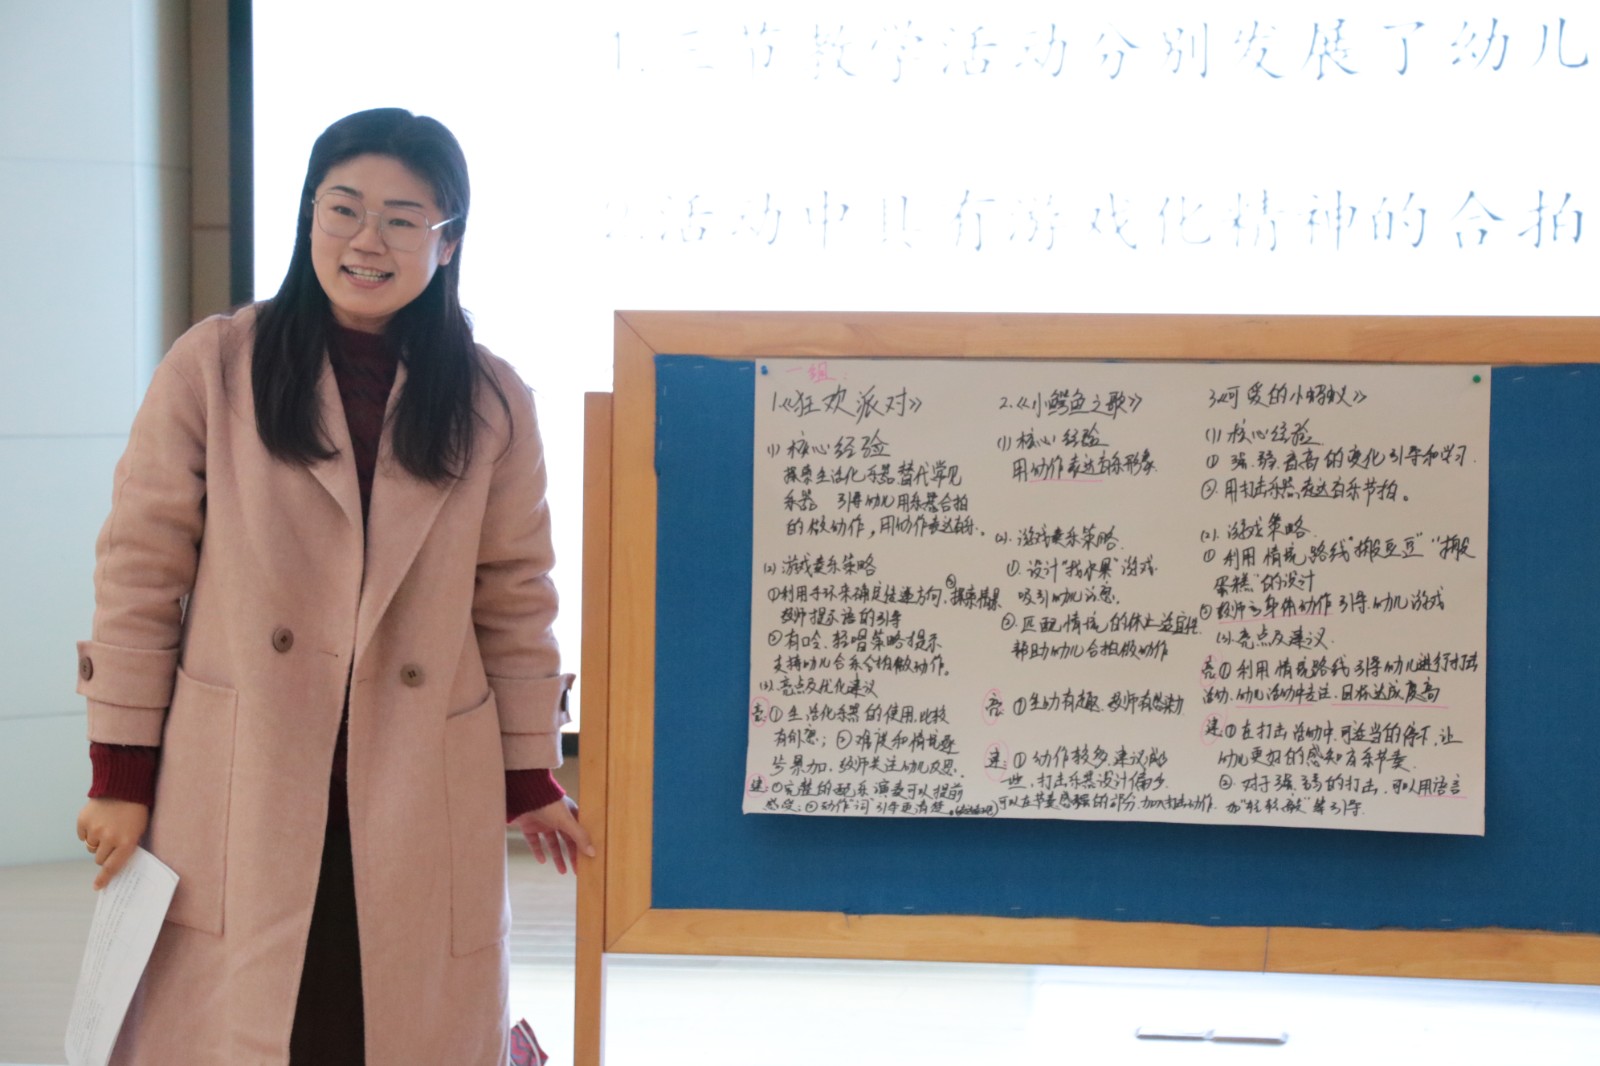 1.三节教学活动分别发展了幼儿
2.活动中具有游戏化精神的合拍
一组
1.《狂欢派对》
(1) 核心经验
探索生活化乐器替代常见
乐器 引导幼儿用乐器合拍
的做动作，用动作表达音乐。
(2) 游戏奏乐策略
①利用手环来确定传递方向，
教师提示语的引导
②有哼、轻唱策略提示
支持幼儿合乐合拍做动作。
(3).亮点及优化建议
亮:①生活化乐器的使用，比较
有创意；②难度和情境逐
步累加，教师关注幼儿反思.
建:①完整的配乐演奏可以提前
感受；②动作"词"引导更清楚。
2.《小鳄鱼之歌》
(1) 核心经验
用动作表达音乐形象
(2).游戏奏乐策略
①.设计"摘水果"游戏
吸引幼儿注意.
②.匹配情境的
帮助幼儿合拍做动作
亮:①生动有趣，教师有感染力
建:①动作较多，建议
些，打击乐器设计偏少
可以在节奏感强的部分加入打击动作.
3.《可爱的小蚂蚁》
(1) 核心经验
① 强、弱、音高的变化引导和学习.
②.用打击乐器表达音乐节拍。
(2).游戏策略
① 利用情境路线"搬豆豆""搬
蛋糕"的设计
②教师之身体动作引导幼儿游戏
(3).亮点及建议.
亮:①利用情境路线引导幼儿进行打击
活动.幼儿活动中专注、目标达成度高
建:①在打击活动中，可适当的停下，让
幼儿更好的感知音乐节奏.
②.对于强、弱的打击，可以用语言
如"轻轻敲"等引导.